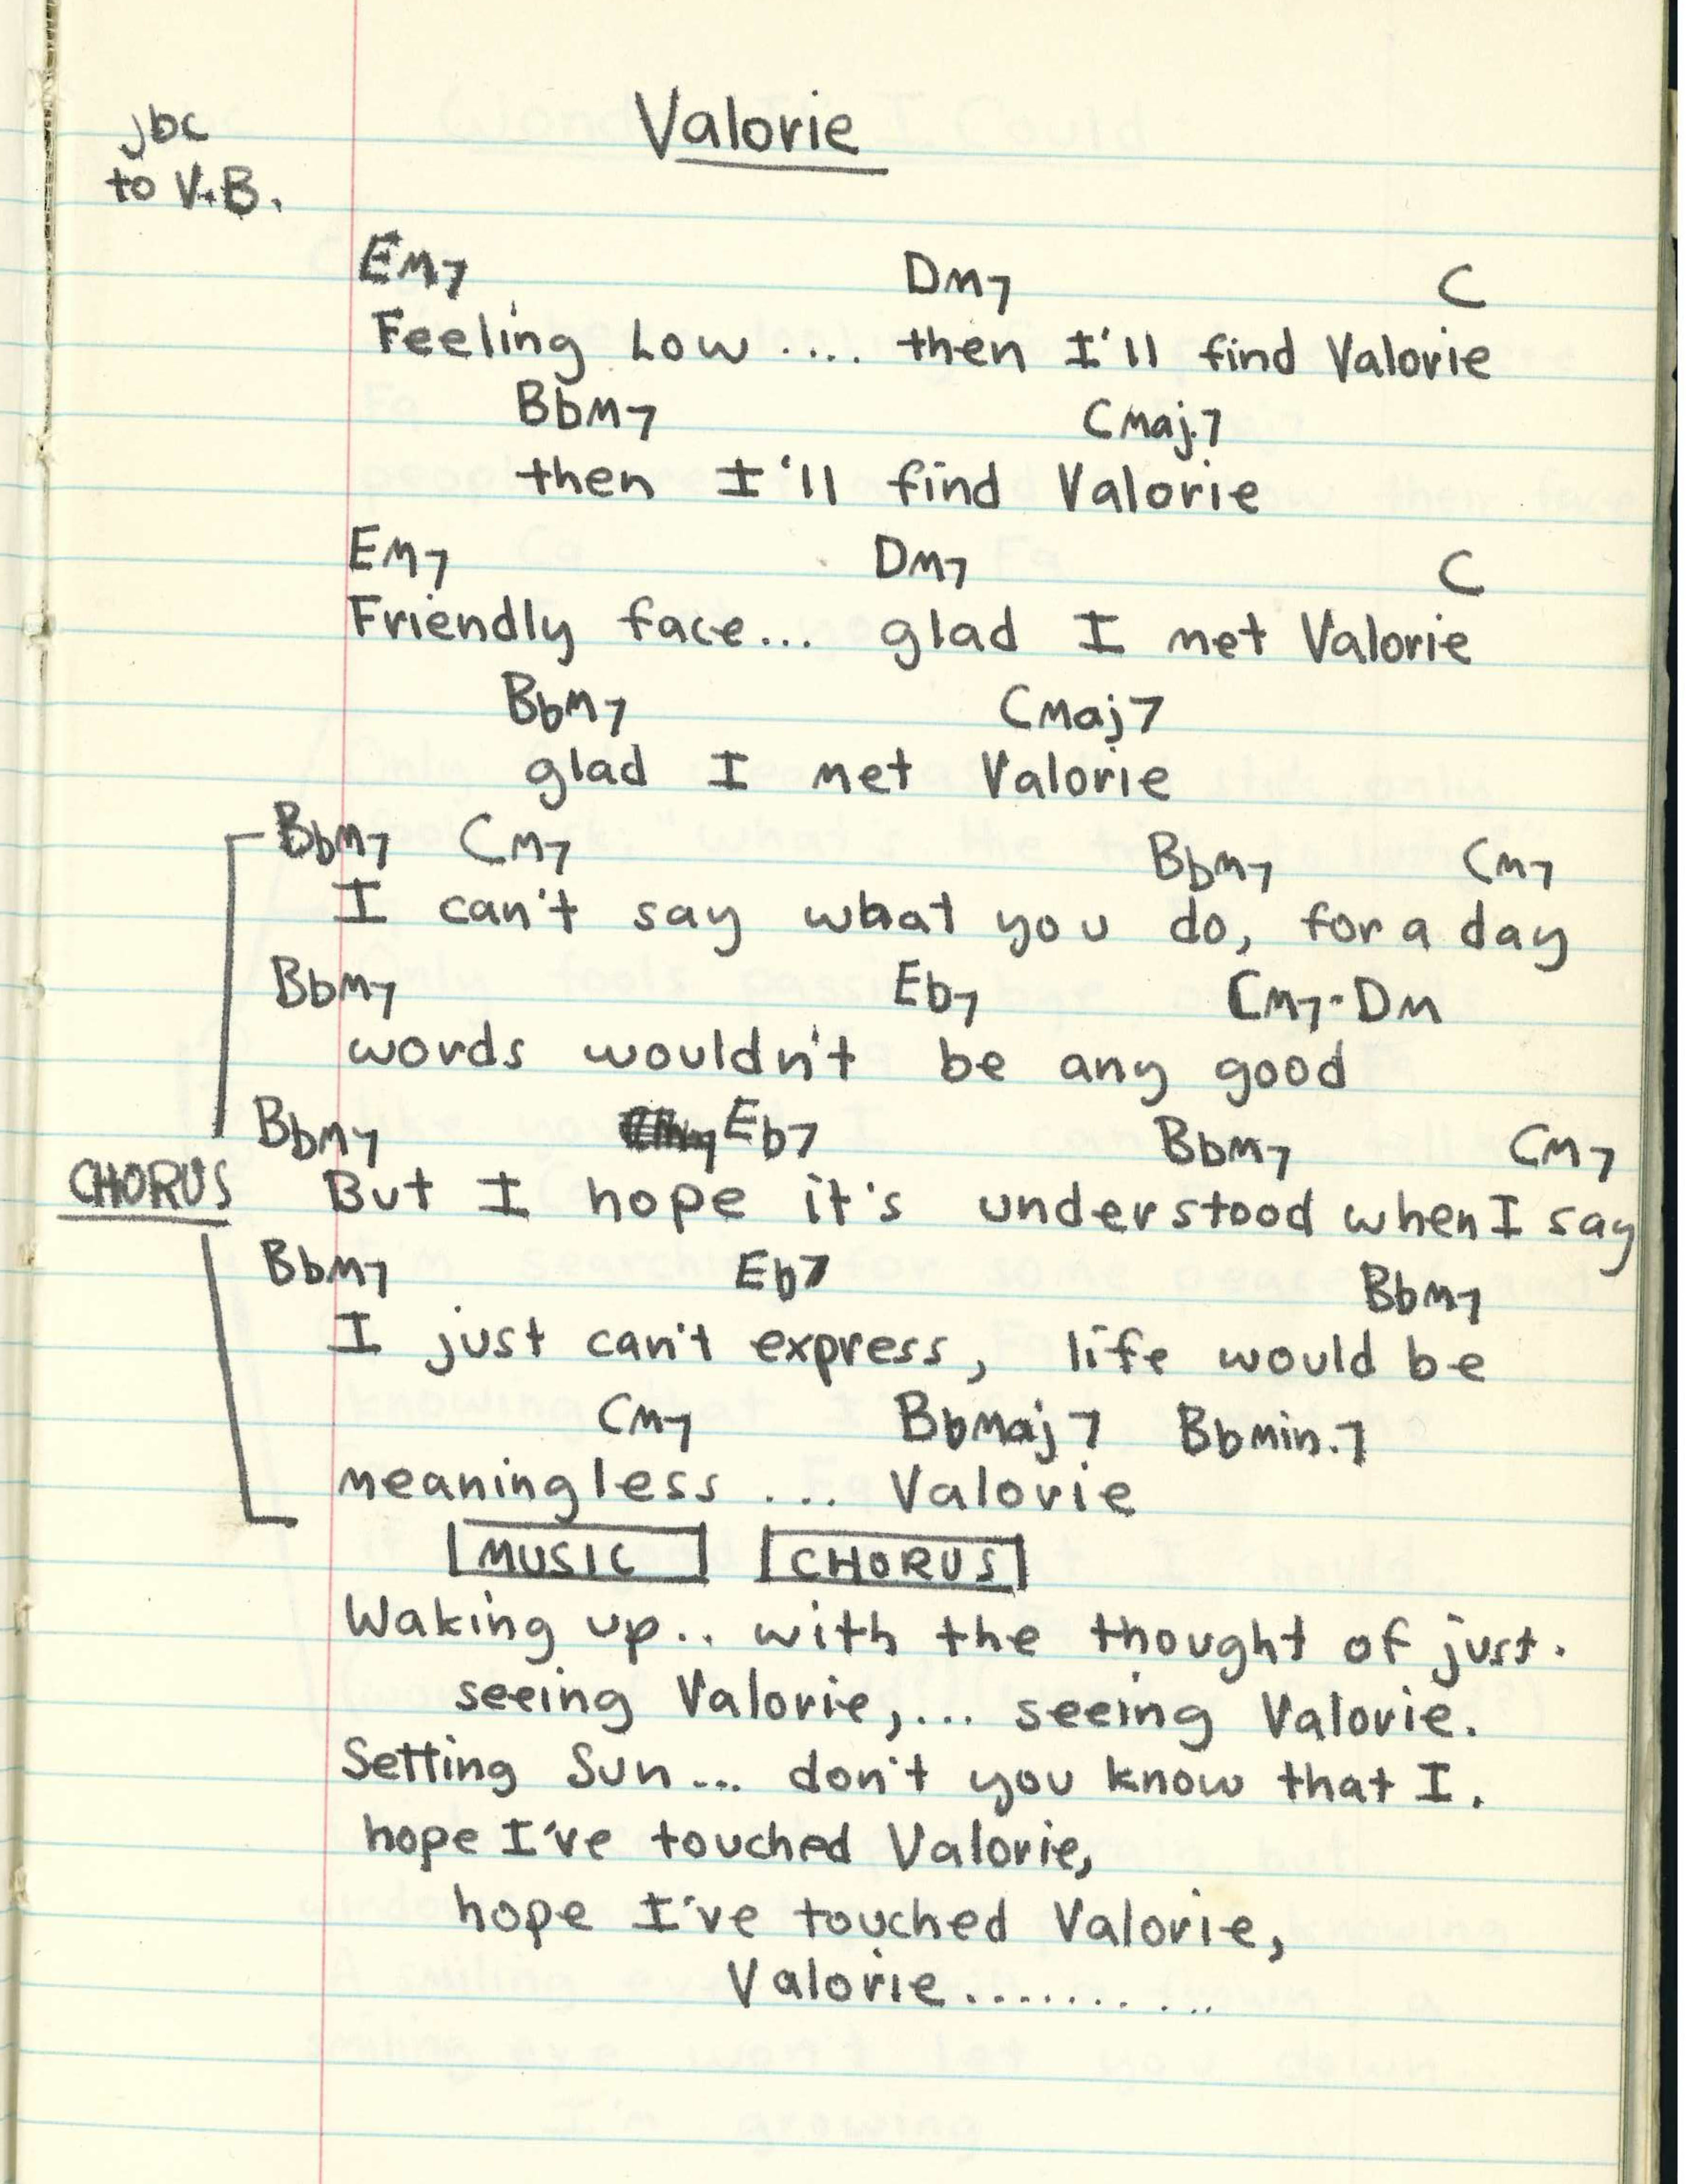 Valorie
jbc
to V.B.
Em7 Dm7 C
Feeling Low.... then I'll find Valorie
Bbm7 Cmaj.7
then I'll find Valorie
Em7 Dm7 C
Friendly face... glad I met Valorie
Bbm7 Cmaj7
glad I met Valorie
Bbm7 Cm7 Bbm7 Cm7
I can't say what you do, for a day
Bbm7 Eb7 Cm7-Dm
words wouldn't be any good
Bbm7 Eb7 Bbm7 Cm7
CHORUS But I hope it's understood when I say
Bbm7 Eb7 Bbm7
I just can't express, life would be
Cm7 Bbmaj7 Bbmin.7
meaningless .... Valorie
MUSIC CHORUS
Waking up.. with the thought of just.
seeing Valorie,... seeing Valorie.
Setting Sun... don't you know that I.
hope I've touched Valorie,
hope I've touched Valorie,
Valorie..........